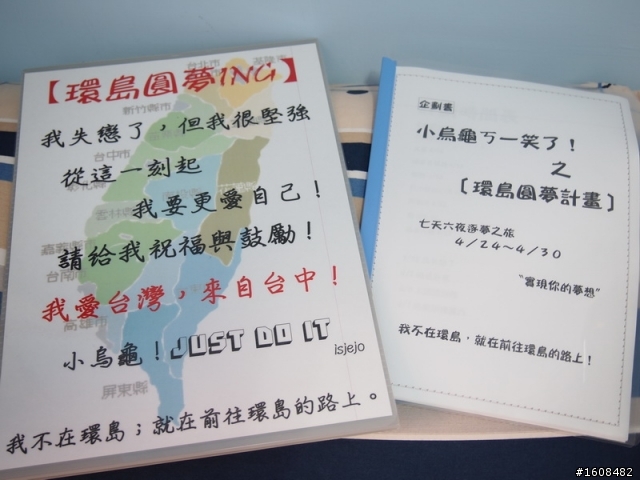 【環島圓夢ING】
我失戀了，但我很堅強
從這一刻起
我要更愛自己！
請給我祝福與鼓勵！
我愛台灣，來自台中！
小烏龜！JUST DO IT
isjejo
我不在環島；就在前往環島的路上。
台北市
新竹縣市
台中市
嘉義縣
高雄市
屏東縣
企劃書
小烏龜ㄎ一笑了！
之
〔環島圓夢計畫〕
七天六夜逐夢之旅
4/24～4/30
"實現你的夢想"
我不在環島，就在前往環島的路上！
#1608482